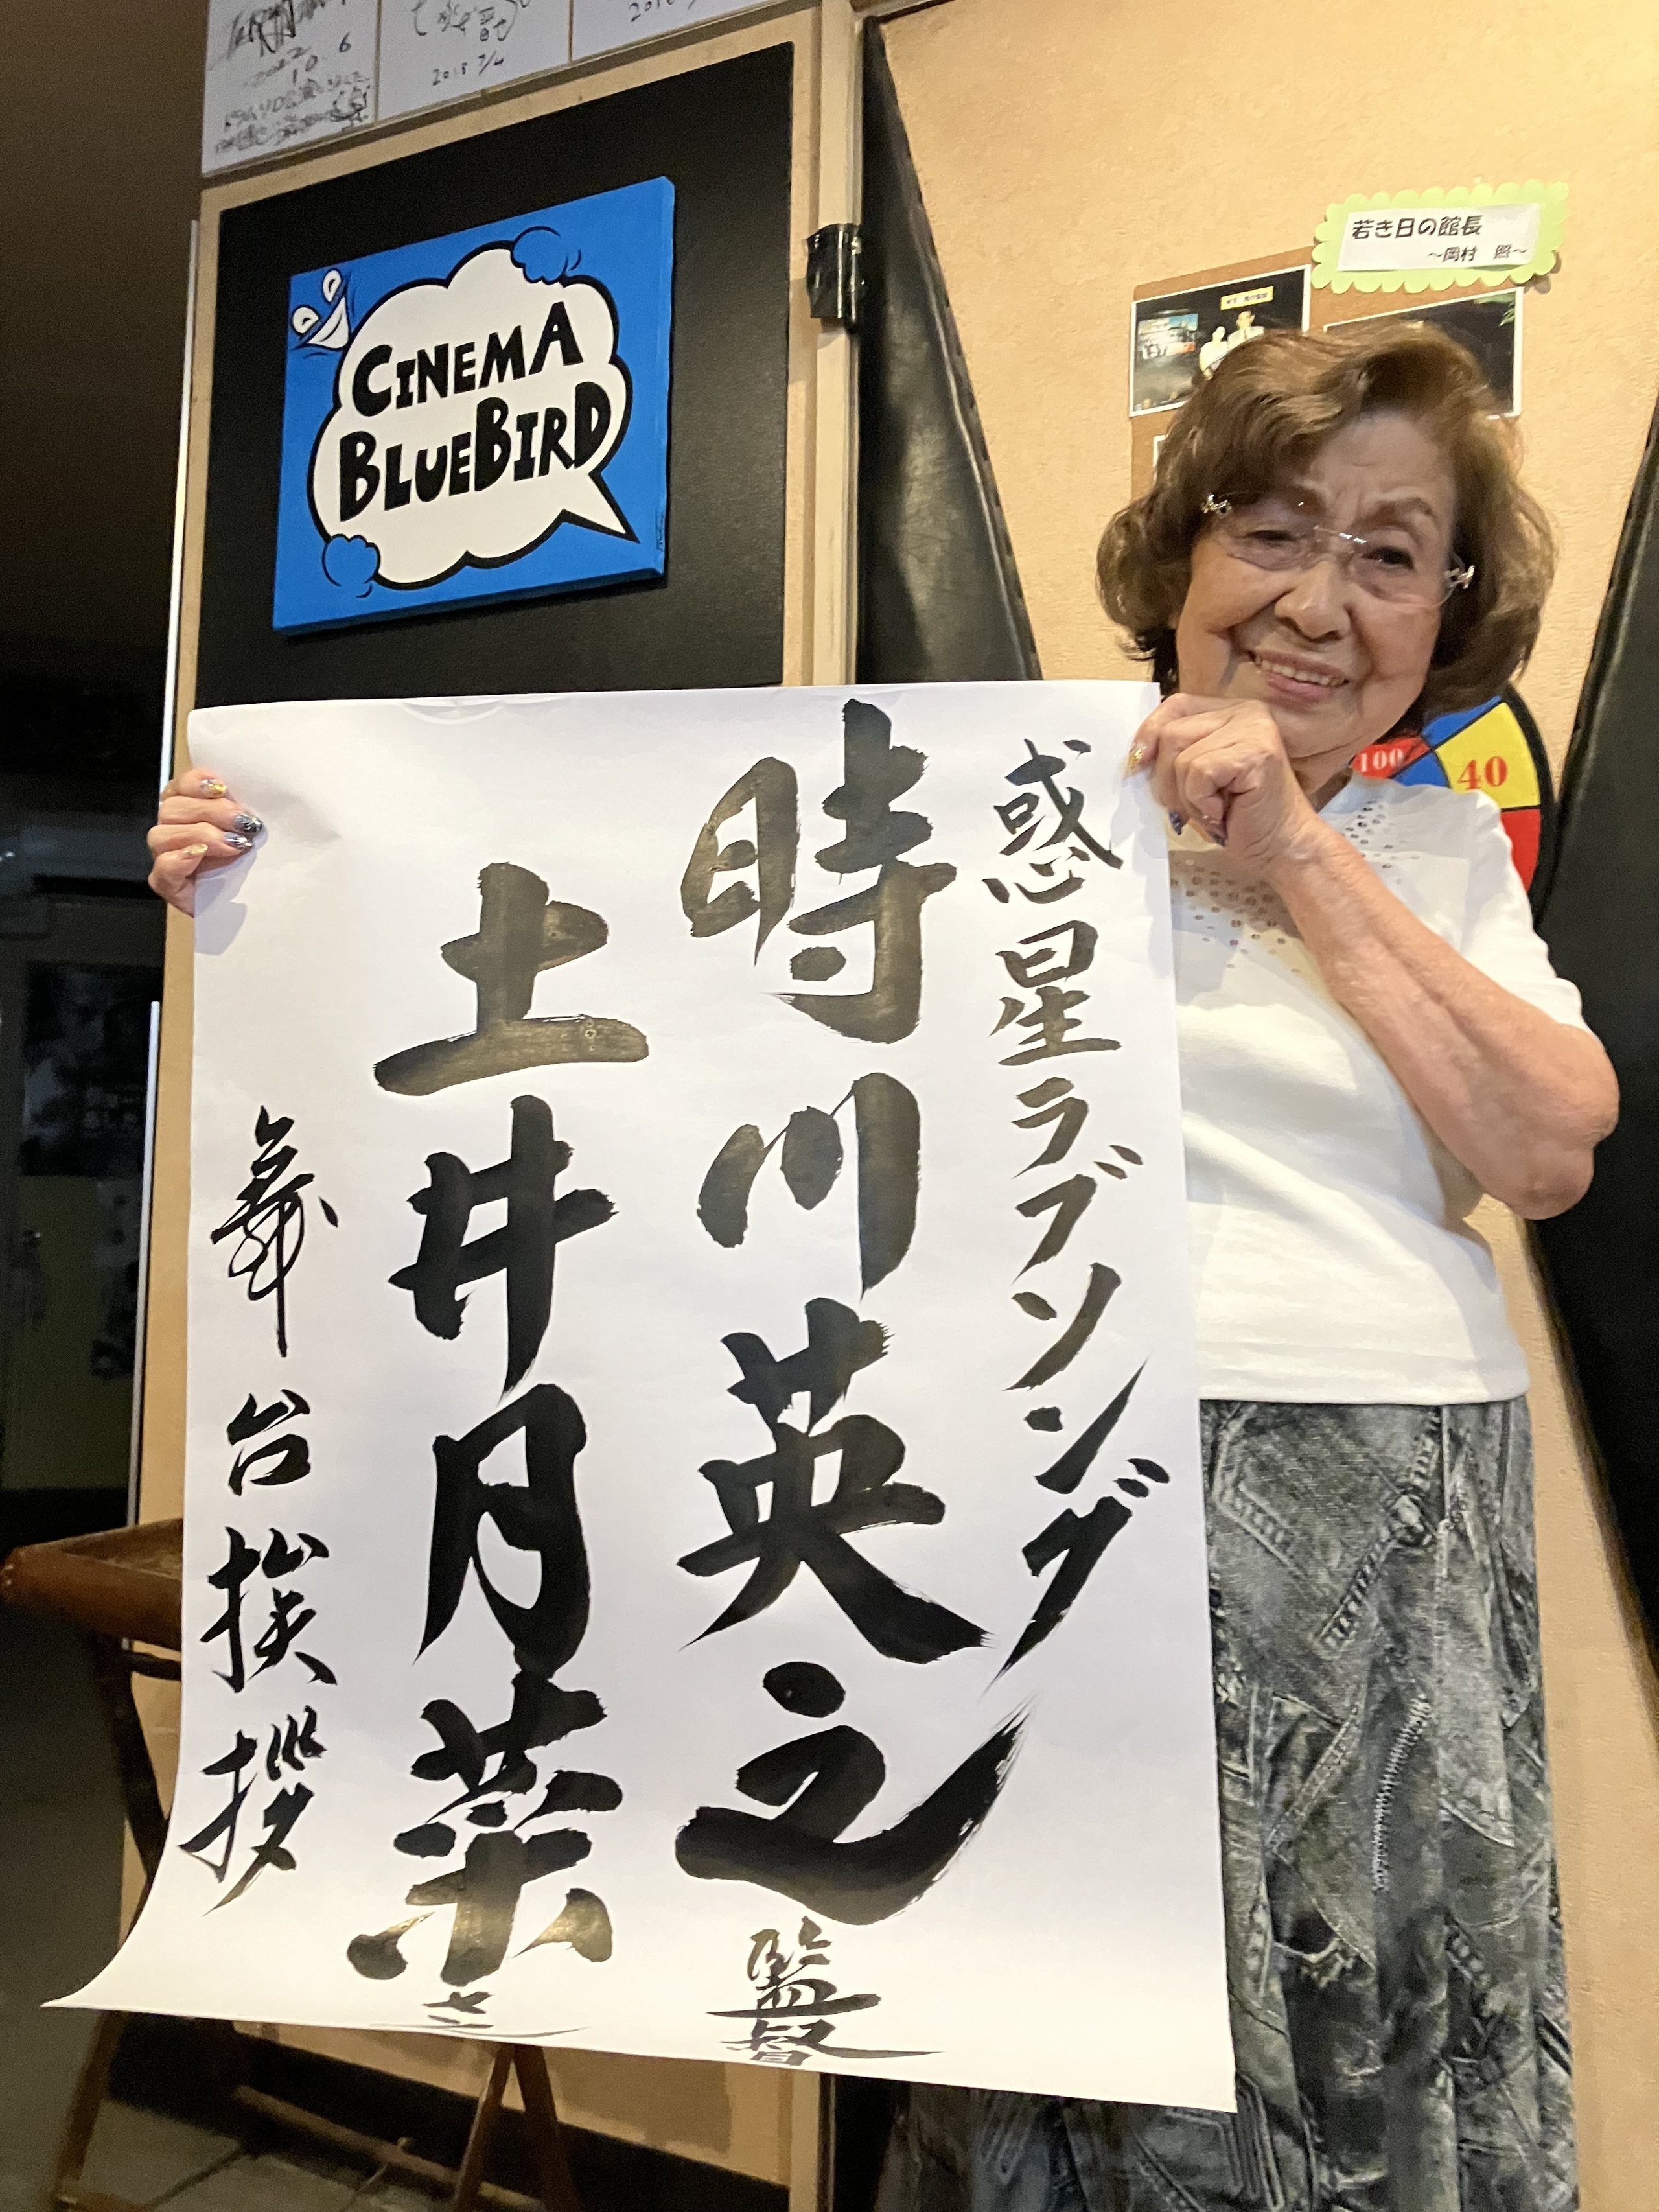 2022
10.6
2018 7/4
CINEMA
BLUEBIRD
若き日の館長
~岡村 照~
100
40
惑星ラブソング
時川英之監督
土井月菜さん
舞台挨拶